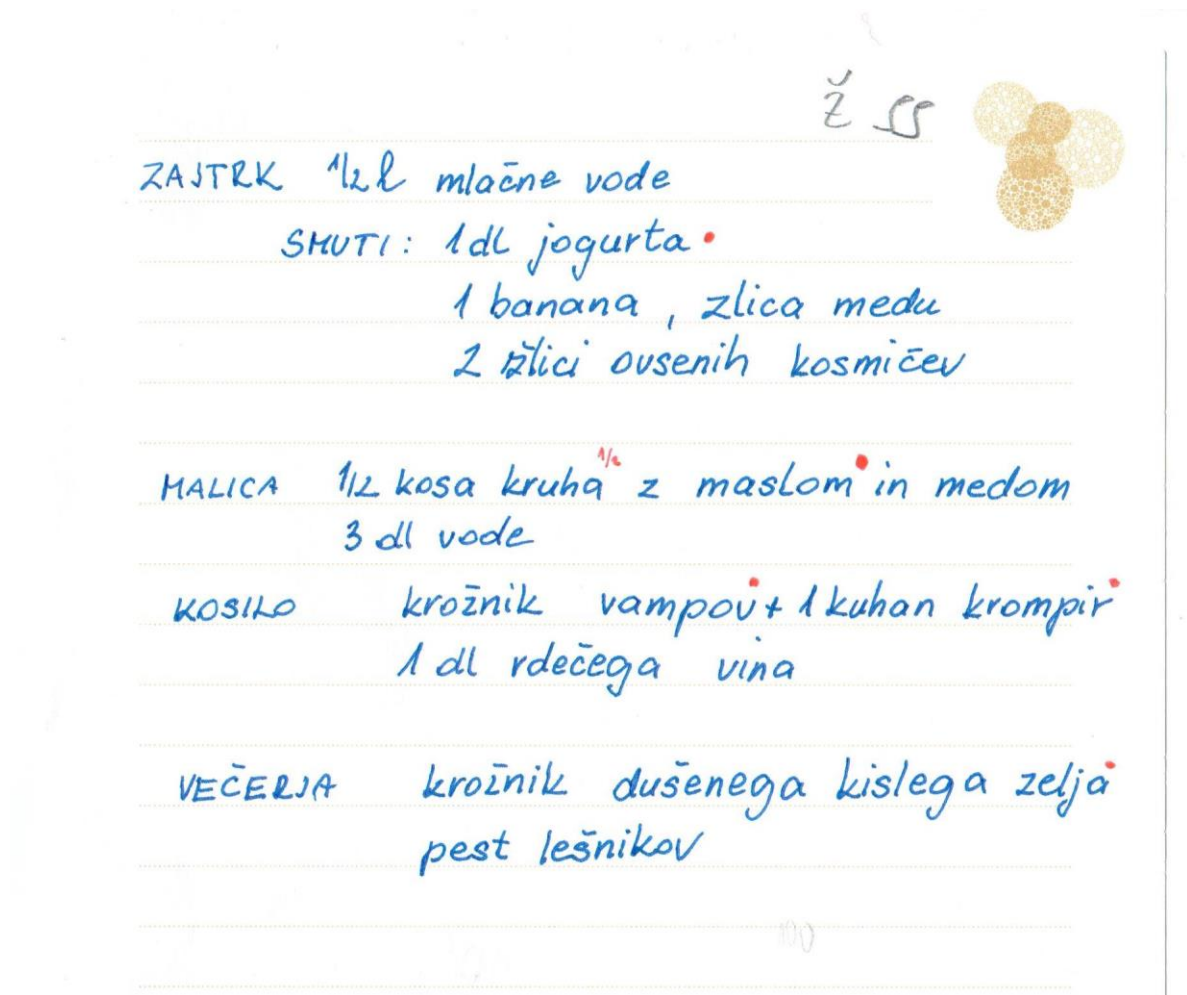 Ž 55
ZAJTRK 1/2 l mlačne vode
SMUTI: 1 dl jogurta
1 banana, zlica medu
2 žlici ovsenih kosmičev
1/2
MALICA 1/2 kosa kruha z maslom in medom
3 dl vode
KOSILO krožnik vampov + 1 kuhan krompir
1 dl rdečega vina
VEČERJA krožnik dušenega kislega zelja
pest lešnikov
100